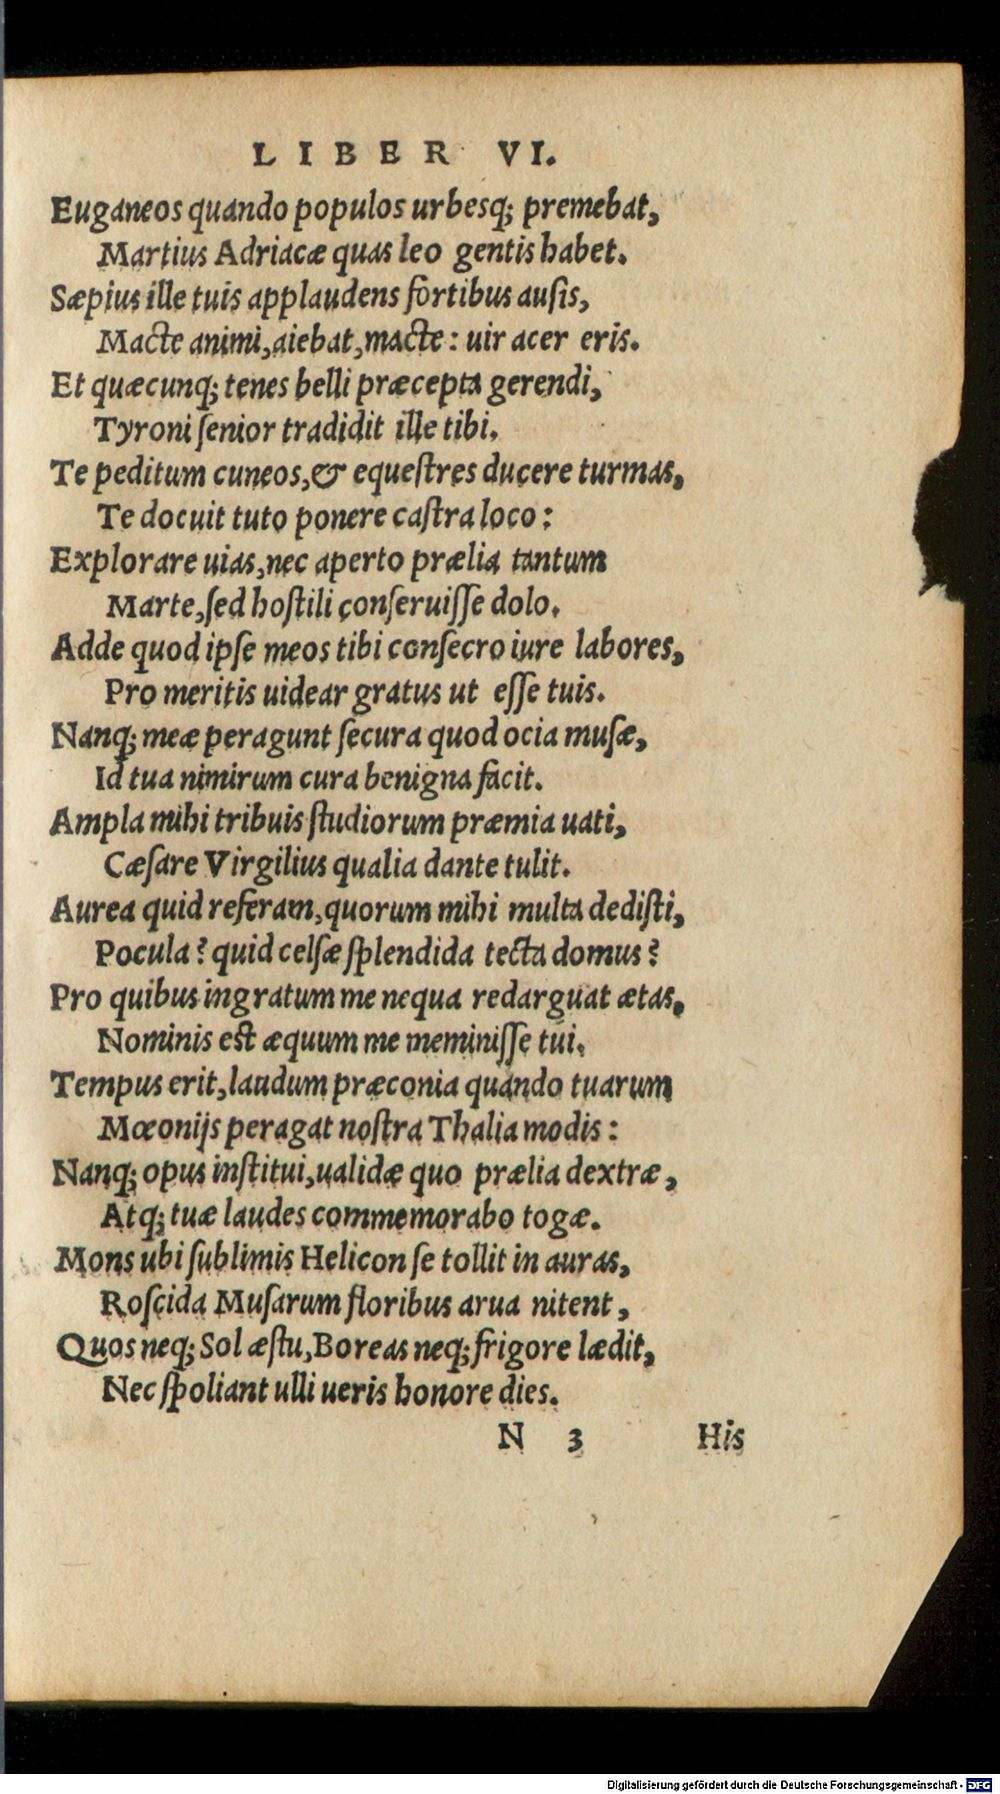 LIBER VI.
Euganeos quando populos urbesq; premebat,
Martius Adriacæ quas leo gentis habet.
Sæpius ille tuis applaudens fortibus ausis,
Macte animi, aiebat, macte: uir acer eris.
Et quæcunq; tenes belli præcepta gerendi,
Tyroni senior tradidit ille tibi.
Te peditum cuneos, & equestres ducere turmas,
Te docuit tuto ponere castra loco:
Explorare uias, nec aperto prælia tantum
Marte, sed hostili conseruisse dolo.
Adde quod ipse meos tibi consecro iure labores,
Pro meritis uidear gratus ut esse tuis.
Nanq; meæ peragunt secura quod ocia musæ,
Id tua nimirum cura benigna facit.
Ampla mihi tribuis studiorum præmia uati,
Cæsare Virgilius qualia dante tulit.
Aurea quid referam, quorum mihi multa dedisti,
Pocula? quid celsæ splendida tecta domus?
Pro quibus ingratum me nequa redarguat ætas,
Nominis est æquum me meminisse tui.
Tempus erit, laudum præconia quando tuarum
Mœonijs peragat nostra Thalia modis:
Nanq; opus institui, ualidæ quo prælia dextræ,
Atq; tuæ laudes commemorabo togæ.
Mons ubi sublimis Helicon se tollit in auras,
Roscida Musarum floribus arua nitent,
Quos neq; Sol æstu, Boreas neq; frigore lædit,
Nec spoliant ulli ueris honore dies.
N 3 His
Digitalisierung gefördert durch die Deutsche Forschungsgemeinschaft - DFG